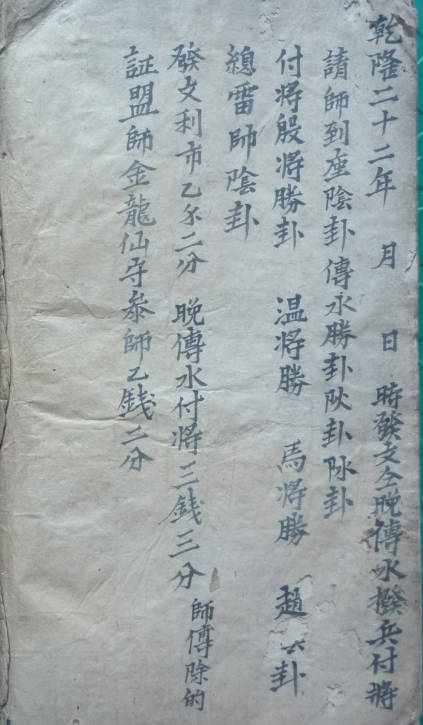 乾隆二十二年 月 日 時發文仝晚傳水撥兵付將
請師到座陰卦傳水勝卦陽卦陰卦
付將殷將勝卦 温將勝 馬將勝 趙 卦
總雷帥陰卦
發文利市乙分二分 晚傳水付將三錢三分 師傅除的
証盟師金龍仙寺叅師乙錢二分